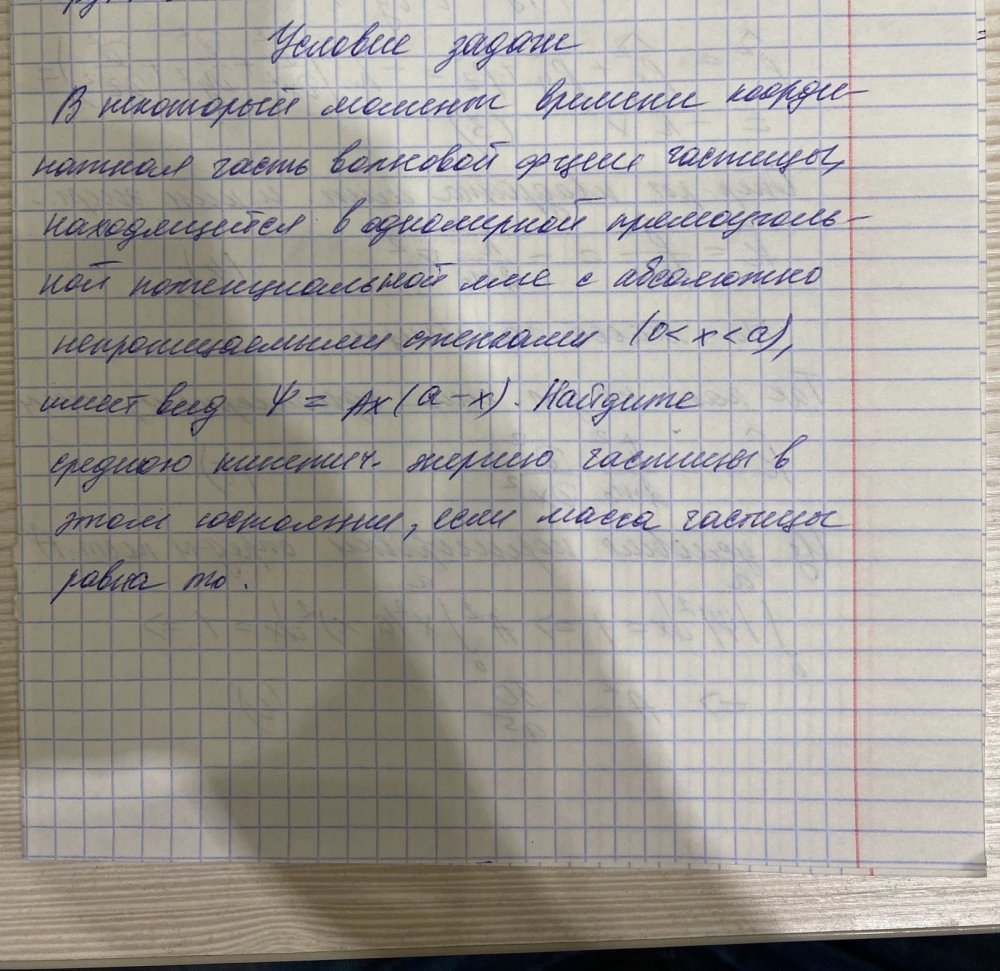 Условие задачи
В некоторый момент времени коорди-
натная часть волновой ф-ции частицы,
находящейся в одномерной прямоуголь-
ной потенциальной яме с абсолютно
непроницаемыми стенками (0 < x < a),
имеет вид ψ = Ax(a-x). Найдите
среднюю кинетич. энергию частицы в
этом состоянии, если масса частицы
равна m₀.